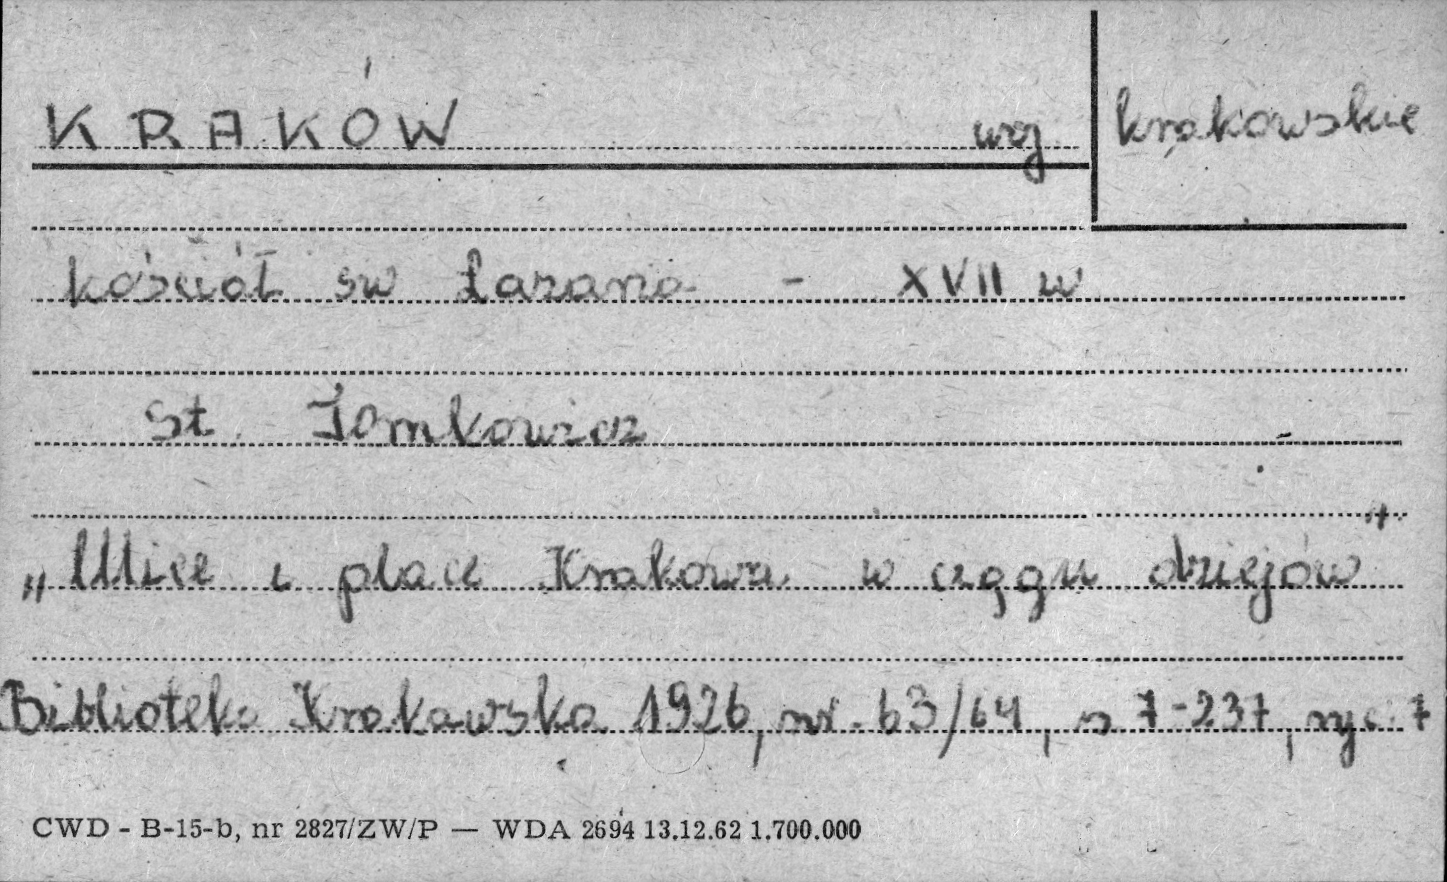 KRAKÓW woj krakowskie
kościół św Łazarza - XVII w
St. Tomkowicz
„Ulice i place Krakowa w ciągu dziejów"
Biblioteka Krakowska 1926, nr. 63/64, s 7-237, ryc. 7
CWD - B-15-b, nr 2827/ZW/P — WDA 2694 13.12.62 1.700.000